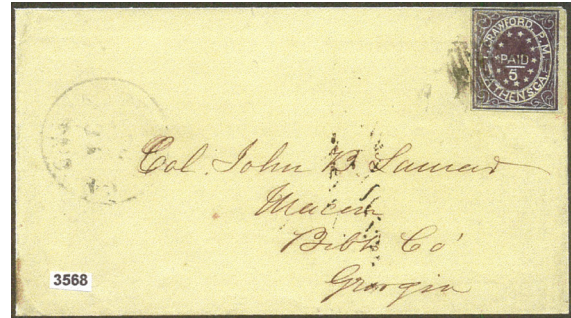 CRAWFORD, P.M.
PAID
5
ATHENS, GA.
Col. John B Lamar
Macon
Bibb Co'
Georgia
3568